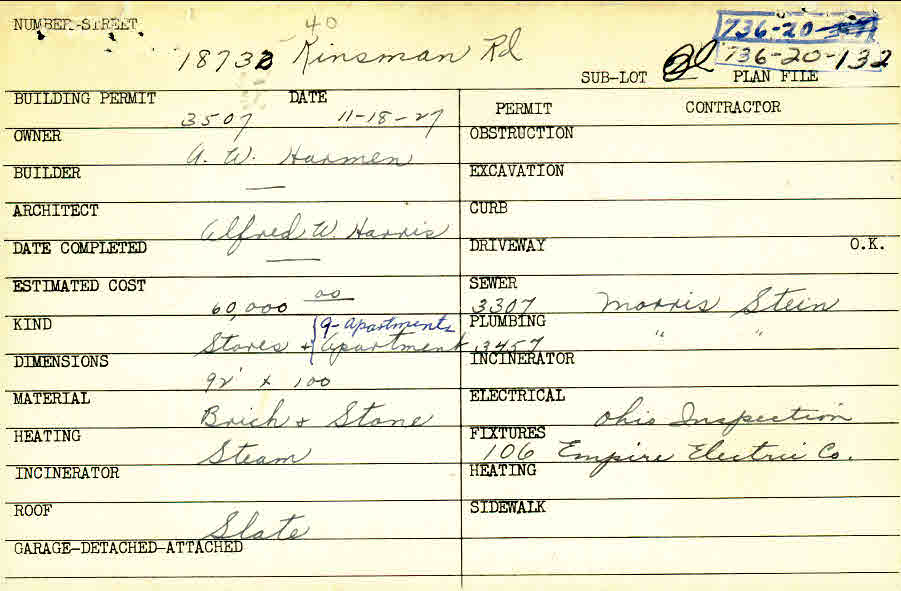 NUMBER-STREET
40
18732 Kinsman Rd
736-20-
736-20-132
SUB-LOT PLAN FILE
BUILDING PERMIT DATE
3507 11-18-27
OWNER
A. W. Harmen
BUILDER
—
ARCHITECT
Alfred W. Harris
DATE COMPLETED
—
ESTIMATED COST
60,000 00
KIND
9-apartments
Stores + apartment
DIMENSIONS
92' x 100
MATERIAL
Brick + Stone
HEATING
Steam
INCINERATOR
ROOF
Slate
GARAGE-DETACHED-ATTACHED
PERMIT CONTRACTOR
OBSTRUCTION
EXCAVATION
CURB
DRIVEWAY O.K.
SEWER
3307 Morris Stein
PLUMBING
13457 " "
INCINERATOR
ELECTRICAL
Ohio Inspection
FIXTURES
106 Empire Electric Co.
HEATING
SIDEWALK